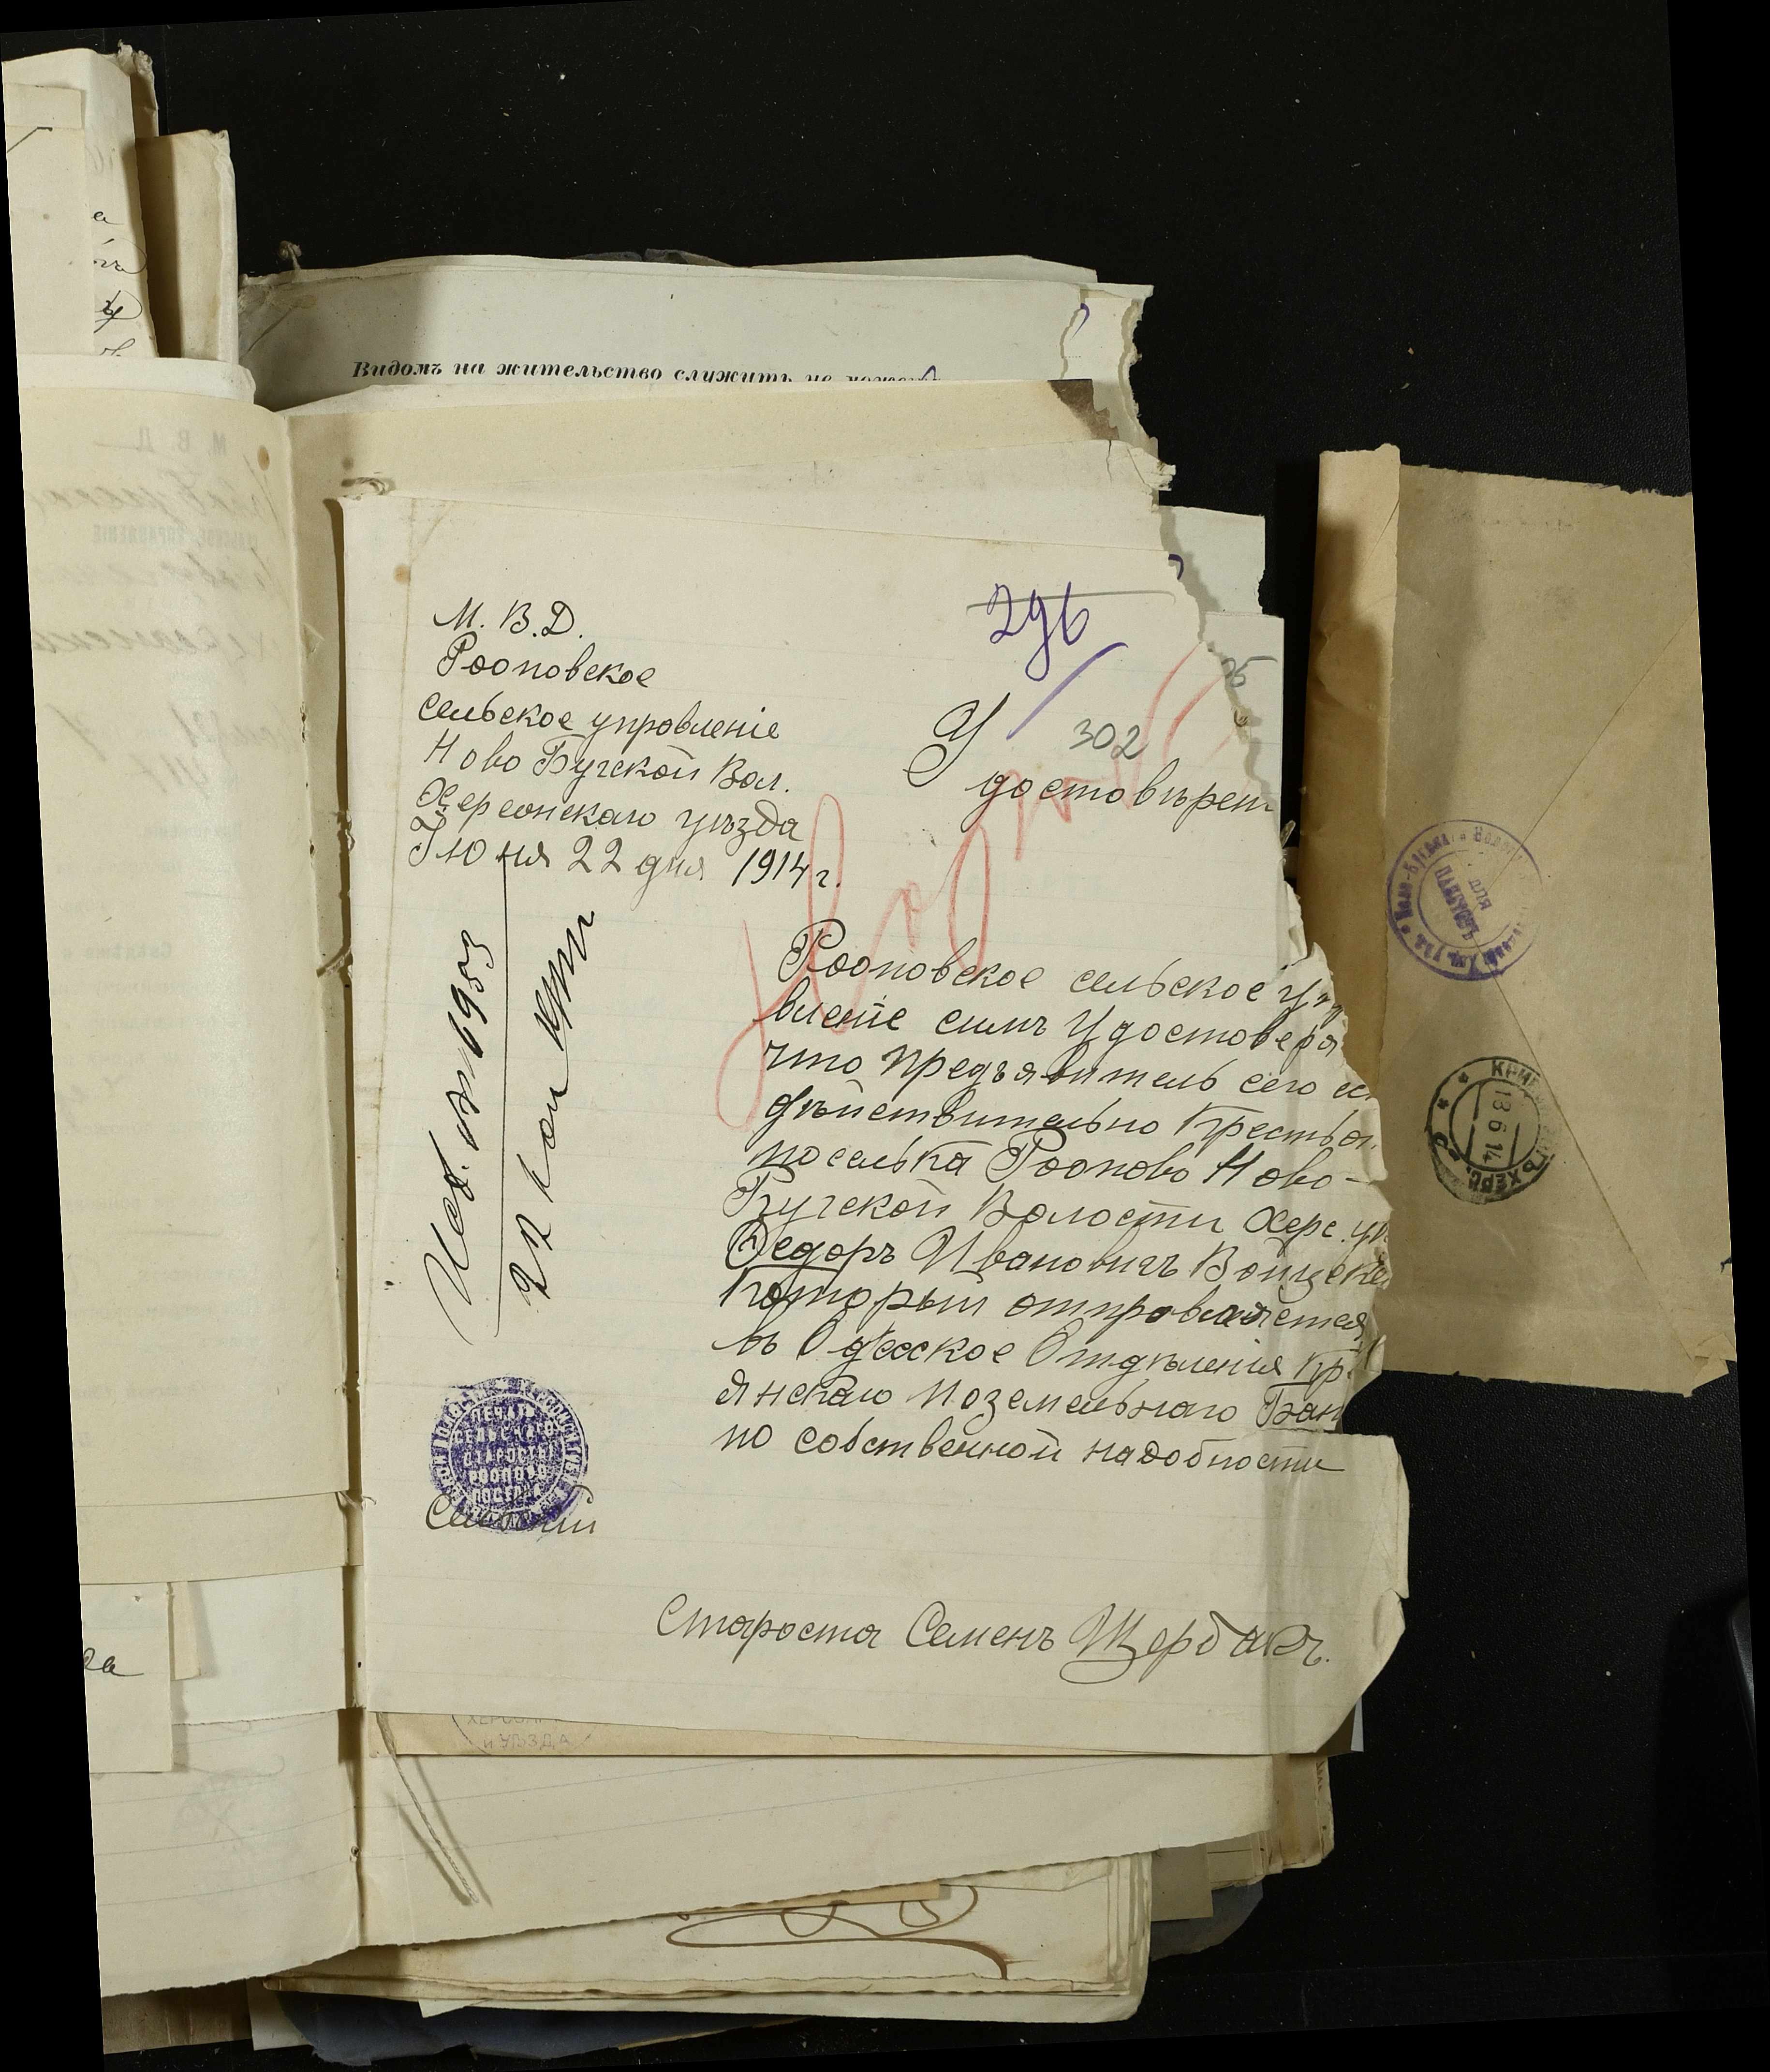 Видомъ на жительство служить не може
М. В. Д.
Рооповское
сельское управленіе
Ново Бугской Вол.
Херсонскаго уѣзда
Іюня 22 дня 1914 г.
296
302
Удостовѣрен
Рооповское сельское упр
вленіе симъ Удостоверя
что предъявитель сего ес
дѣйствительно Крестьян
поселька Роопово Ново-
Бугской Волости Херс. уѣ
Федоръ Ивановичъ Войцехо
Который отправляется
въ Одесское Отдѣленія Кр.
янскаго Поземельнаго Бан
по собственной надобности
ПЕЧАТЬ
СЕЛЬСКАГО
СТАРОСТЫ
РООПОВО
ПОСЕЛ
Сельскій
Староста Семенъ Щербакъ.
ХЕРСОН
УѢЗДА
ДЛЯ
ПАКЕТОВЪ
КРИ
13 6 14
ХЕРС.
ва